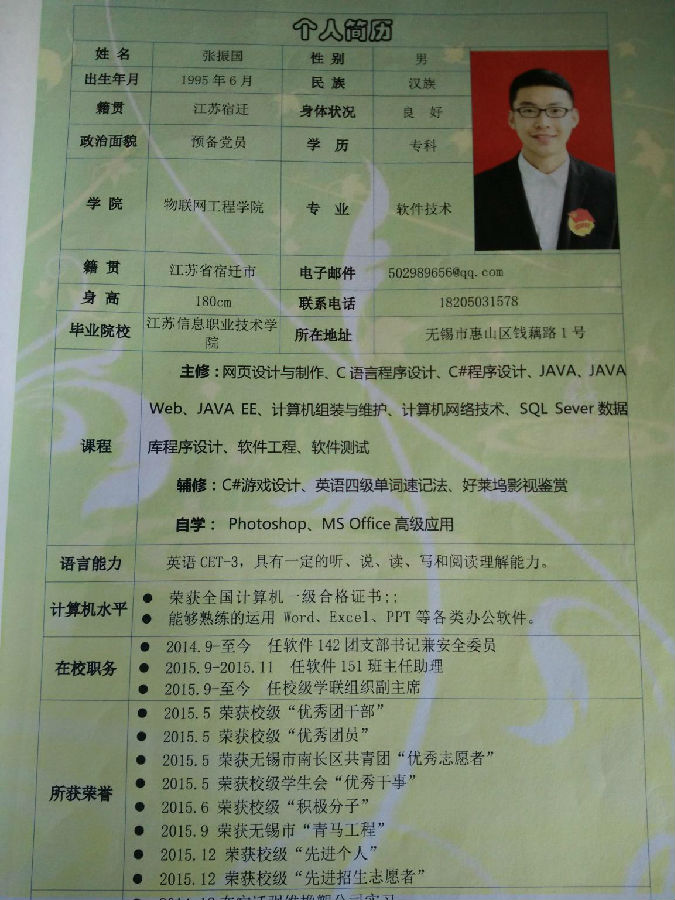 个人简历
姓 名 张振国 性 别 男
出生年月 1995 年 6 月 民 族 汉族
籍贯 江苏宿迁 身体状况 良 好
政治面貌 预备党员 学 历 专科
学 院 物联网工程学院 专 业 软件技术
籍 贯 江苏省宿迁市 电子邮件 502989656@qq.com
身 高 180cm 联系电话 18205031578
毕业院校 江苏信息职业技术学院 所在地址 无锡市惠山区钱藕路 1 号
课程
主修：网页设计与制作、C 语言程序设计、C#程序设计、JAVA、JAVA
Web、JAVA EE、计算机组装与维护、计算机网络技术、SQL Sever 数据
库程序设计、软件工程、软件测试
辅修：C#游戏设计、英语四级单词速记法、好莱坞影视鉴赏
自学： Photoshop、MS Office 高级应用
语言能力 英语 CET-3，具有一定的听、说、读、写和阅读理解能力。
计算机水平
● 荣获全国计算机一级合格证书;;
● 能够熟练的运用 Word、Excel、PPT 等各类办公软件。
在校职务
● 2014.9-至今 任软件 142 团支部书记兼安全委员
● 2015.9-2015.11 任软件 151 班主任助理
● 2015.9-至今 任校级学联组织副主席
所获荣誉
● 2015.5 荣获校级“优秀团干部”
● 2015.5 荣获校级“优秀团员”
● 2015.5 荣获无锡市南长区共青团“优秀志愿者”
● 2015.5 荣获校级学生会“优秀干事”
● 2015.6 荣获校级“积极分子”
● 2015.9 荣获无锡市“青马工程”
● 2015.12 荣获校级“先进个人”
● 2015.12 荣获校级“先进招生志愿者”